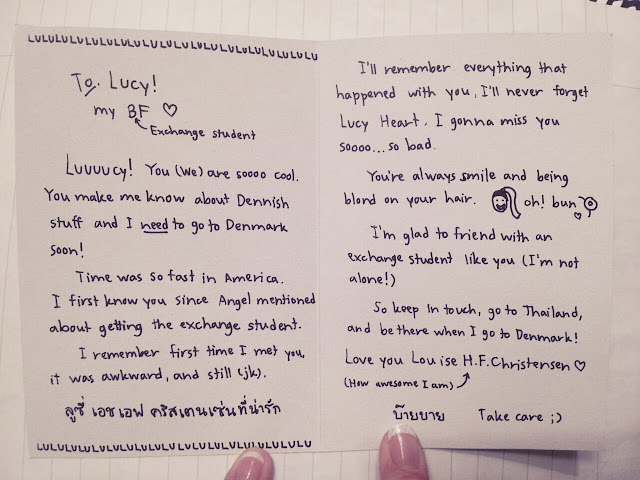 To. Lucy!
my BF ♡
Exchange student
Luuuucy! You (We) are soooo cool.
You make me know about Dennish
stuff and I need to go to Denmark
soon!
Time was so fast in America.
I first know you since Angel mentioned
about getting the exchange student.
I remember first time I met you,
it was awkward, and still (jk).
ลูซี่ เอช เอฟ คริสเตนเซ่นที่น่ารัก
I'll remember everything that
happened with you, I'll never forget
Lucy Heart. I gonna miss you
soooo...so bad.
You're always smile and being
blond on your hair. oh! bun
I'm glad to friend with an
exchange student like you (I'm not
alone!)
So keep in touch, go to Thailand,
and be there when I go to Denmark!
Love you Louise H.F.Christensen ♡
(How awesome I am)
บ๊ายบาย Take care ;)